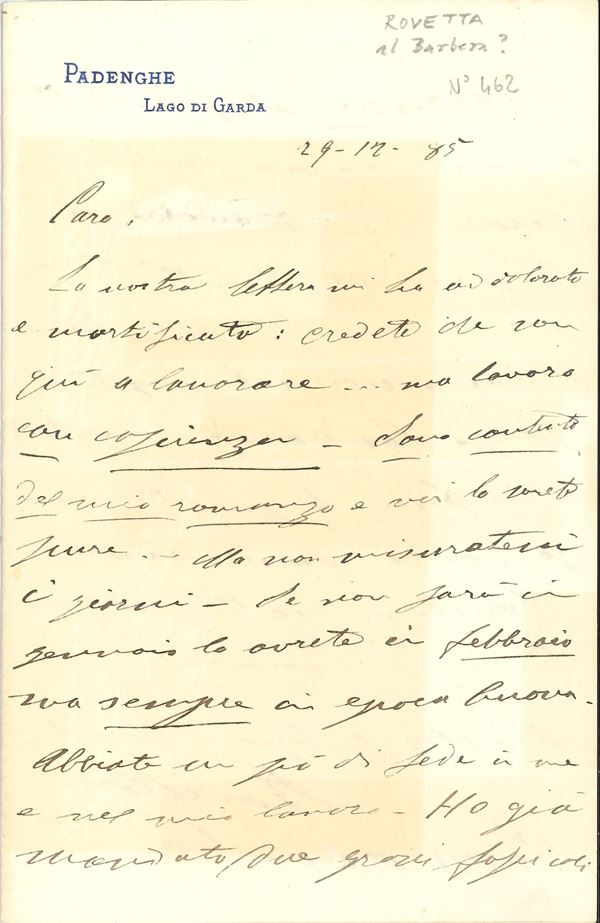 ROVETTA
al Barbera?
N° 462
PADENGHE
LAGO DI GARDA
29-12-85
Caro,
La vostra lettera mi ha addolorato
e mortificato: credete che son
qui a lavorare ... ma lavoro
con coscienza - Sono contento
del mio romanzo e voi lo sarete
pure. - Ma non misuratemi
i giorni - Se non sarà in
gennaio lo avrete in febbraio
ma sempre in epoca buona.
Abbiate un pò di fede in me
e nel mio lavoro - Ho già
mandato due grossi fascicoli